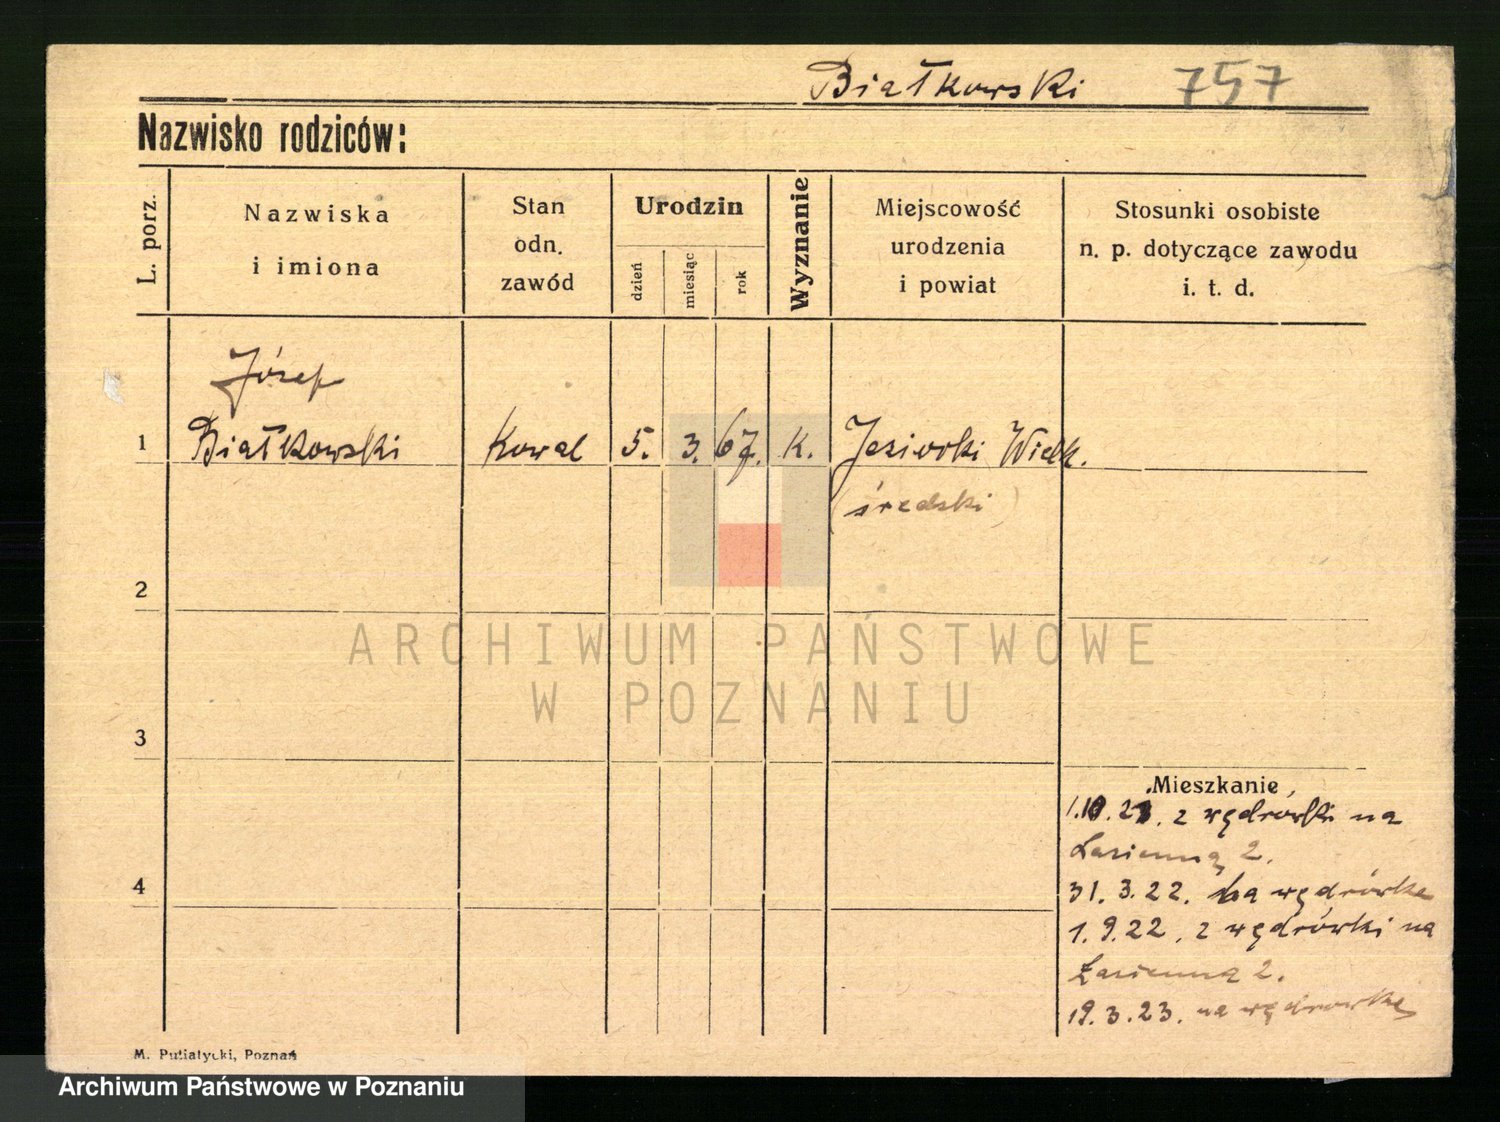 Białkowski 757
Nazwisko rodziców:
L. porz.
Nazwiska
i imiona
Stan
odn.
zawód
Urodzin
dzień
miesiąc
rok
Wyznanie
Miejscowość
urodzenia
i powiat
Stosunki osobiste
n. p. dotyczące zawodu
i. t. d.
Józef
1 Białkowski Kowal 5. 3. 67. K. Jeziorki Wielk.
(średzki)
2
ARCHIWUM PAŃSTWOWE
W POZNANIU
3
Mieszkanie
1.10.21. z wędrówki na
Łazienną 2.
4
31. 3. 22. na wędrówkę
1. 9. 22. z wędrówki na
Łazienną 2.
19. 3. 23. na wędrowkę
M. Putiatycki, Poznań
Archiwum Państwowe w Poznaniu